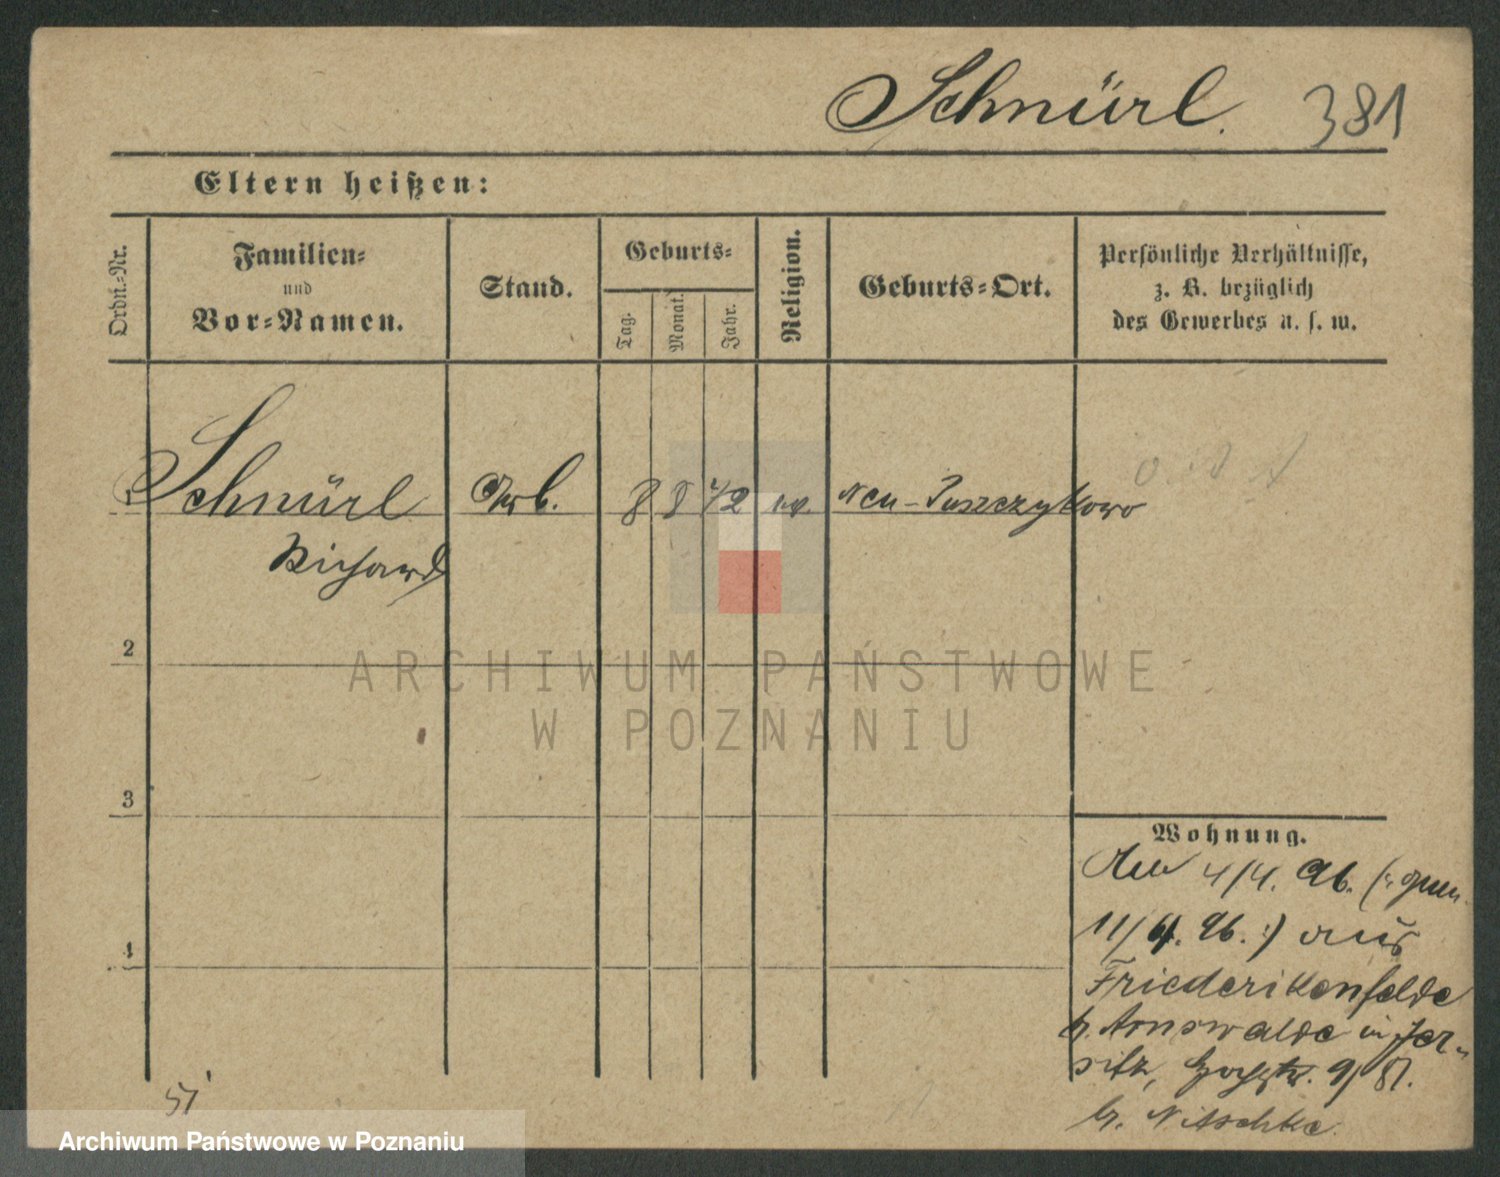 Schnürl. 381
Eltern heißen:
Ordn.-Nr.
Familien-
und
Vor-Namen.
Stand.
Geburts-
Tag.
Monat.
Jahr.
Religion.
Geburts-Ort.
Persönliche Verhältnisse,
z. B. bezüglich
des Gewerbes u. s. w.
Schnürl Arb. 8 8 72 ev. Neu-Puszczykowo
Richard
2
3
4
Wohnung.
4/4. 96.
11/4. 96. :) aus
Friederikenfelde
b. Arnswalde in Jer-
sitz, 9/
b. Nitschke.
ARCHIWUM PAŃSTWOWE
W POZNANIU
Archiwum Państwowe w Poznaniu